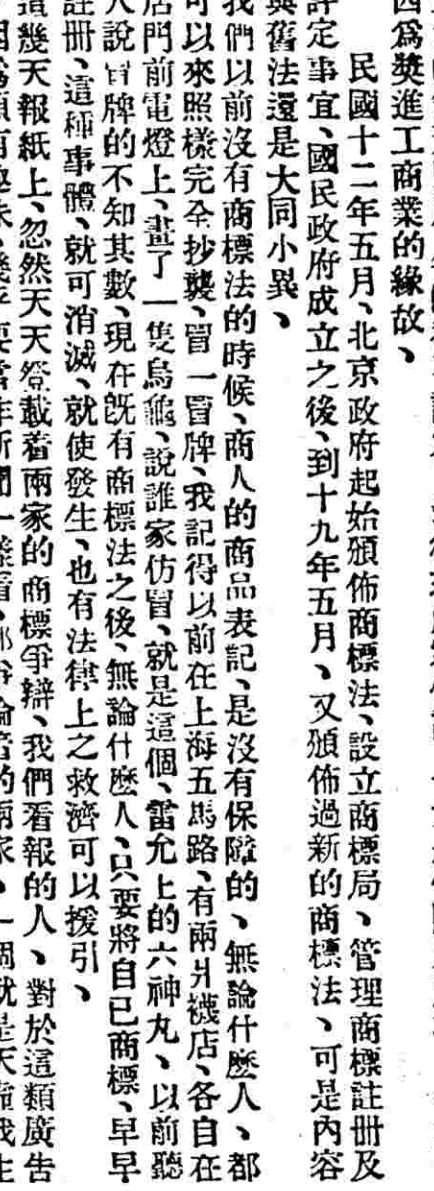 因爲獎進工商業的緣故、
民國十二年五月、北京政府起始頒佈商標法、設立商標局、管理商標註冊及
評定事宜、國民政府成立之後、到十九年五月、又頒佈過新的商標法、可是內容
與舊法還是大同小異、
我們以前沒有商標法的時候、商人的商品表記、是沒有保障的、無論什麽人、都
可以來照樣完全抄襲、冒一冒牌、我記得以前在上海五馬路、有兩爿襪店、各自在
店門前電燈上、畫了一隻烏龜、說誰家仿冒、就是這個、雷允上的六神丸、以前聽
人說冒牌的不知其數、現在旣有商標法之後、無論什麽人、只要將自己商標、早早
註冊、這種事體、就可消滅、就使發生、也有法律上之救濟可以援引、
這幾天報紙上、忽然天天登載着兩家的商標爭辯、我們看報的人、對於這類廣告